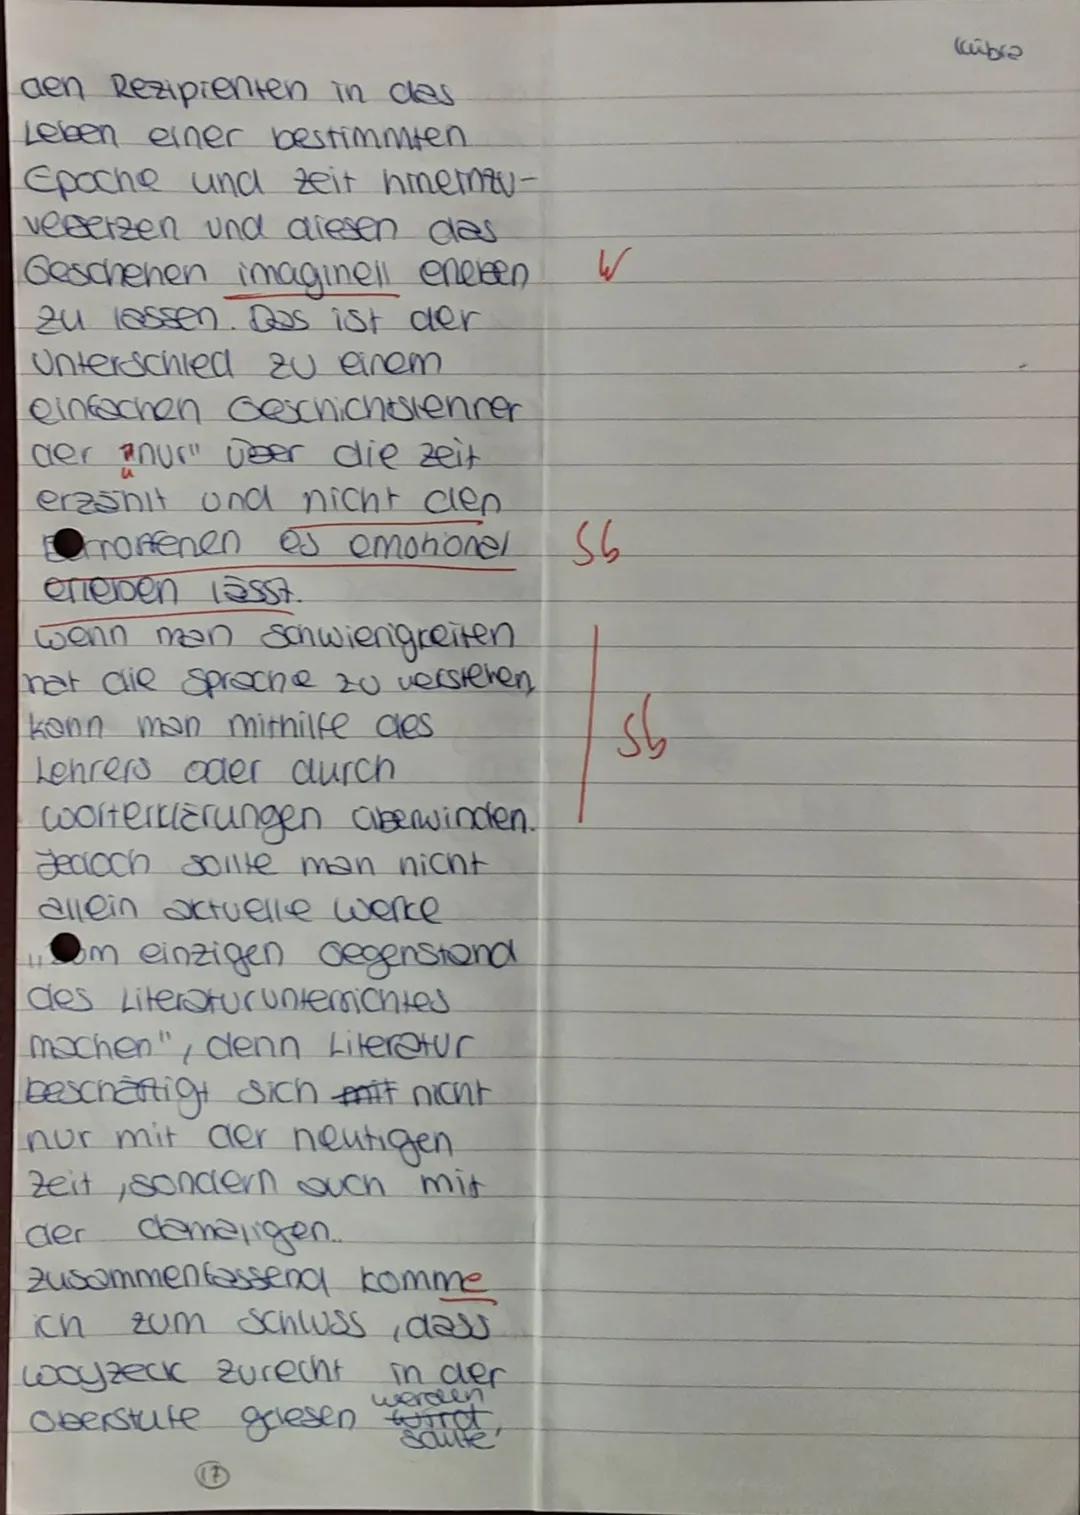 Kübra
den Rezipienten in das
Leben einer bestimmten
Epoche und Zeit hineinzu-
versetzen und diesen das
Geschehen imaginell erleben
W
zu lassen. Das ist der
Unterschied zu einem
einfachen Geschichtskenner
der „nur" über die Zeit
erzählt und nicht den
Betroffenen es emotional
Sb
erleben lässt.
Wenn man Schwierigkeiten
hat die Sprache zu verstehen,
kann man mithilfe des
Sb
Lehrers oder durch
Worterklärungen überwinden.
Jedoch sollte man nicht
allein aktuelle Werke
„zum einzigen Gegenstand
des Literaturunterrichtes
machen", denn Literatur
beschäftigt sich mit nicht
nur mit der heutigen
Zeit, sondern auch mit
der damaligen.
Zusammenfassend komme
ich zum Schluss, dass
Woyzeck zurecht in der
Oberstufe gelesen werden
wird,
sollte
17